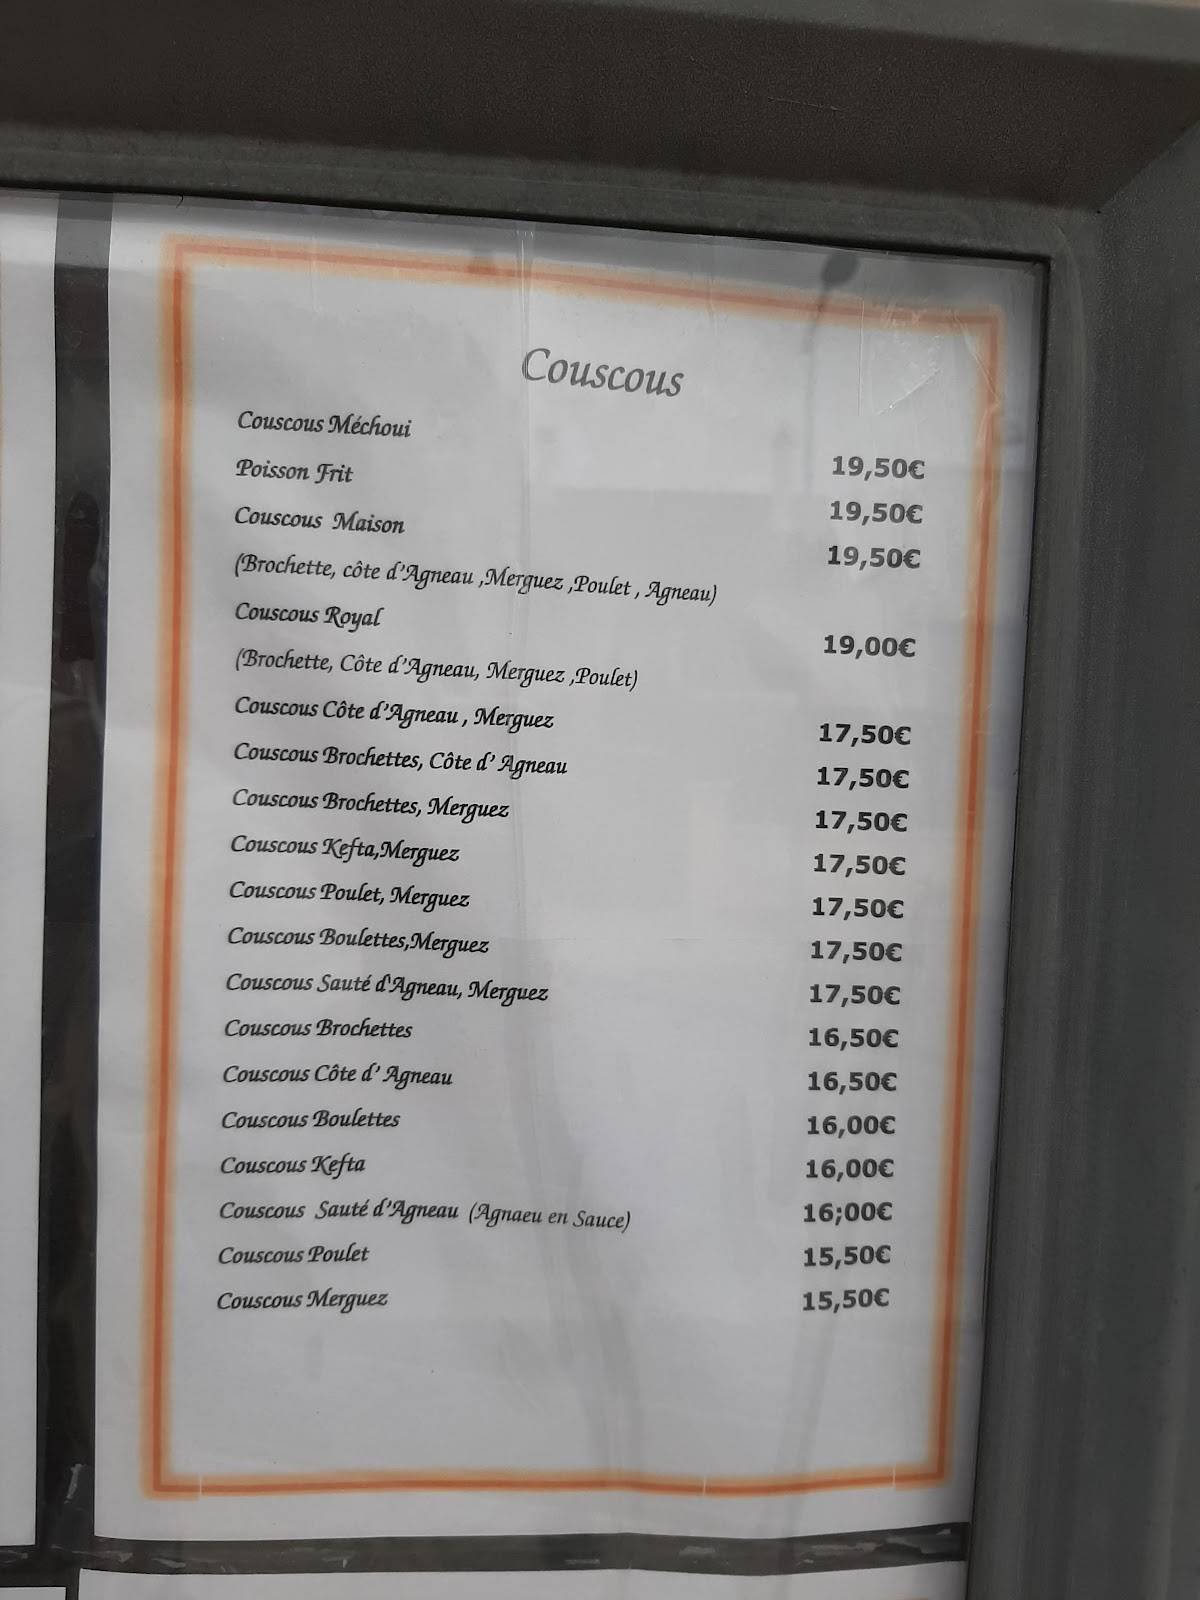 Couscous
Couscous Méchoui 19,50€
Poisson Frit 19,50€
Couscous Maison 19,50€
(Brochette, côte d'Agneau ,Merguez ,Poulet , Agneau)
Couscous Royal 19,00€
(Brochette, Côte d'Agneau, Merguez ,Poulet)
Couscous Côte d'Agneau , Merguez 17,50€
Couscous Brochettes, Côte d' Agneau 17,50€
Couscous Brochettes, Merguez 17,50€
Couscous Kefta,Merguez 17,50€
Couscous Poulet, Merguez 17,50€
Couscous Boulettes,Merguez 17,50€
Couscous Sauté d'Agneau, Merguez 17,50€
Couscous Brochettes 16,50€
Couscous Côte d' Agneau 16,50€
Couscous Boulettes 16,00€
Couscous Kefta 16,00€
Couscous Sauté d'Agneau (Agnaeu en Sauce) 16;00€
Couscous Poulet 15,50€
Couscous Merguez 15,50€